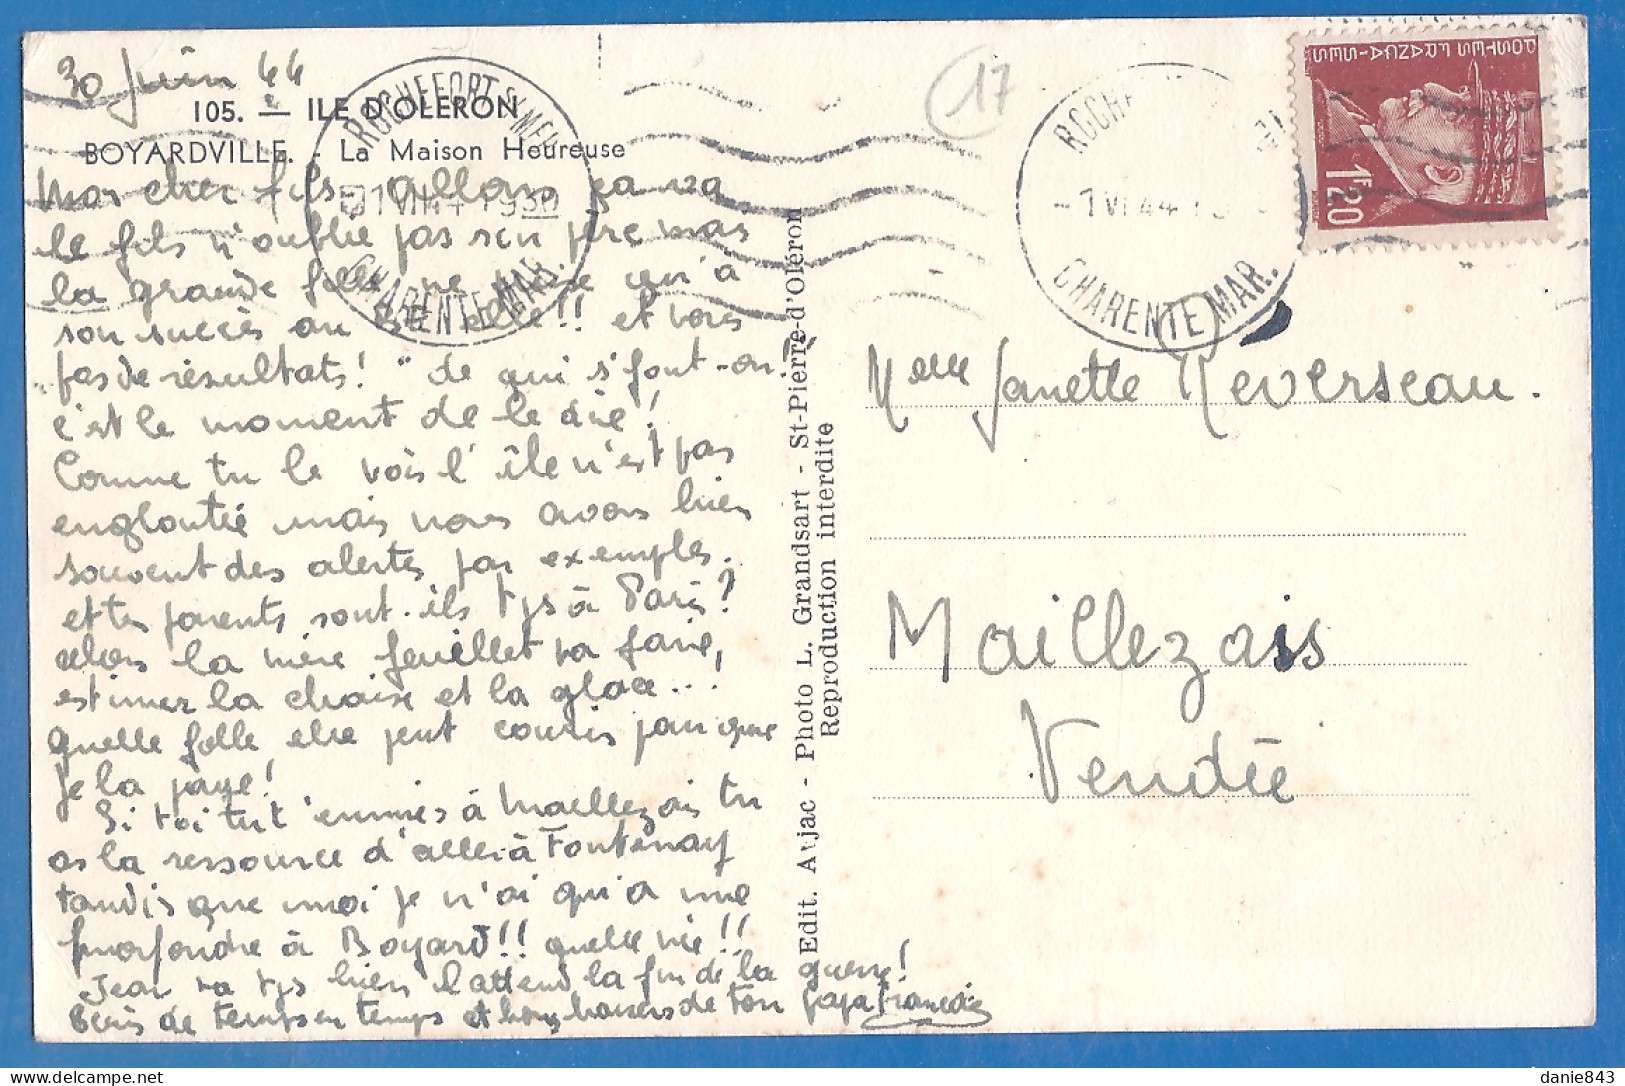 30 Juin 44
105. - ILE D'OLERON
BOYARDVILLE. - La Maison Heureuse
Mon cher fils - allons ça va
le fils n'oublie pas son père mais
la grande fille ne pense qu'à
son succès au elle!! et vous
pas de résultats! "de qui s'font-on?"
c'est le moment de le dire!
Comme tu le vois l'île n'est pas
engloutie mais nous avons bien
souvent des alertes par exemples.
et tes parents sont-ils tjs à Paris?
alors la mère feuillet va faire
estimer la chaise et la glace...!
quelle folle elle peut courir pour que
je la paye!
Si toi tu t'ennuies à Maillezais tu
as la ressource d'aller à Fontenay
tandis que moi je n'ai qu'à me
morfondre à Boyard!! quelle vie!!
Jean va tjs bien l'attend la fin de la guerre!
Ecris de temps en temps et bons baisers de ton papa Francois
Edit. Aujac - Photo L. Grandsart - St-Pierre-d'Oléron
Reproduction interdite
17
ROCHEFORT S/MER
1 VII 44 1930
CHARENTE MAR.
ROCHE
-1 VII 44 1
CHARENTE MAR.
POSTES FRANÇAISES
1F20
Melle Janette Reverseau.
Maillezais
Vendée
danie843